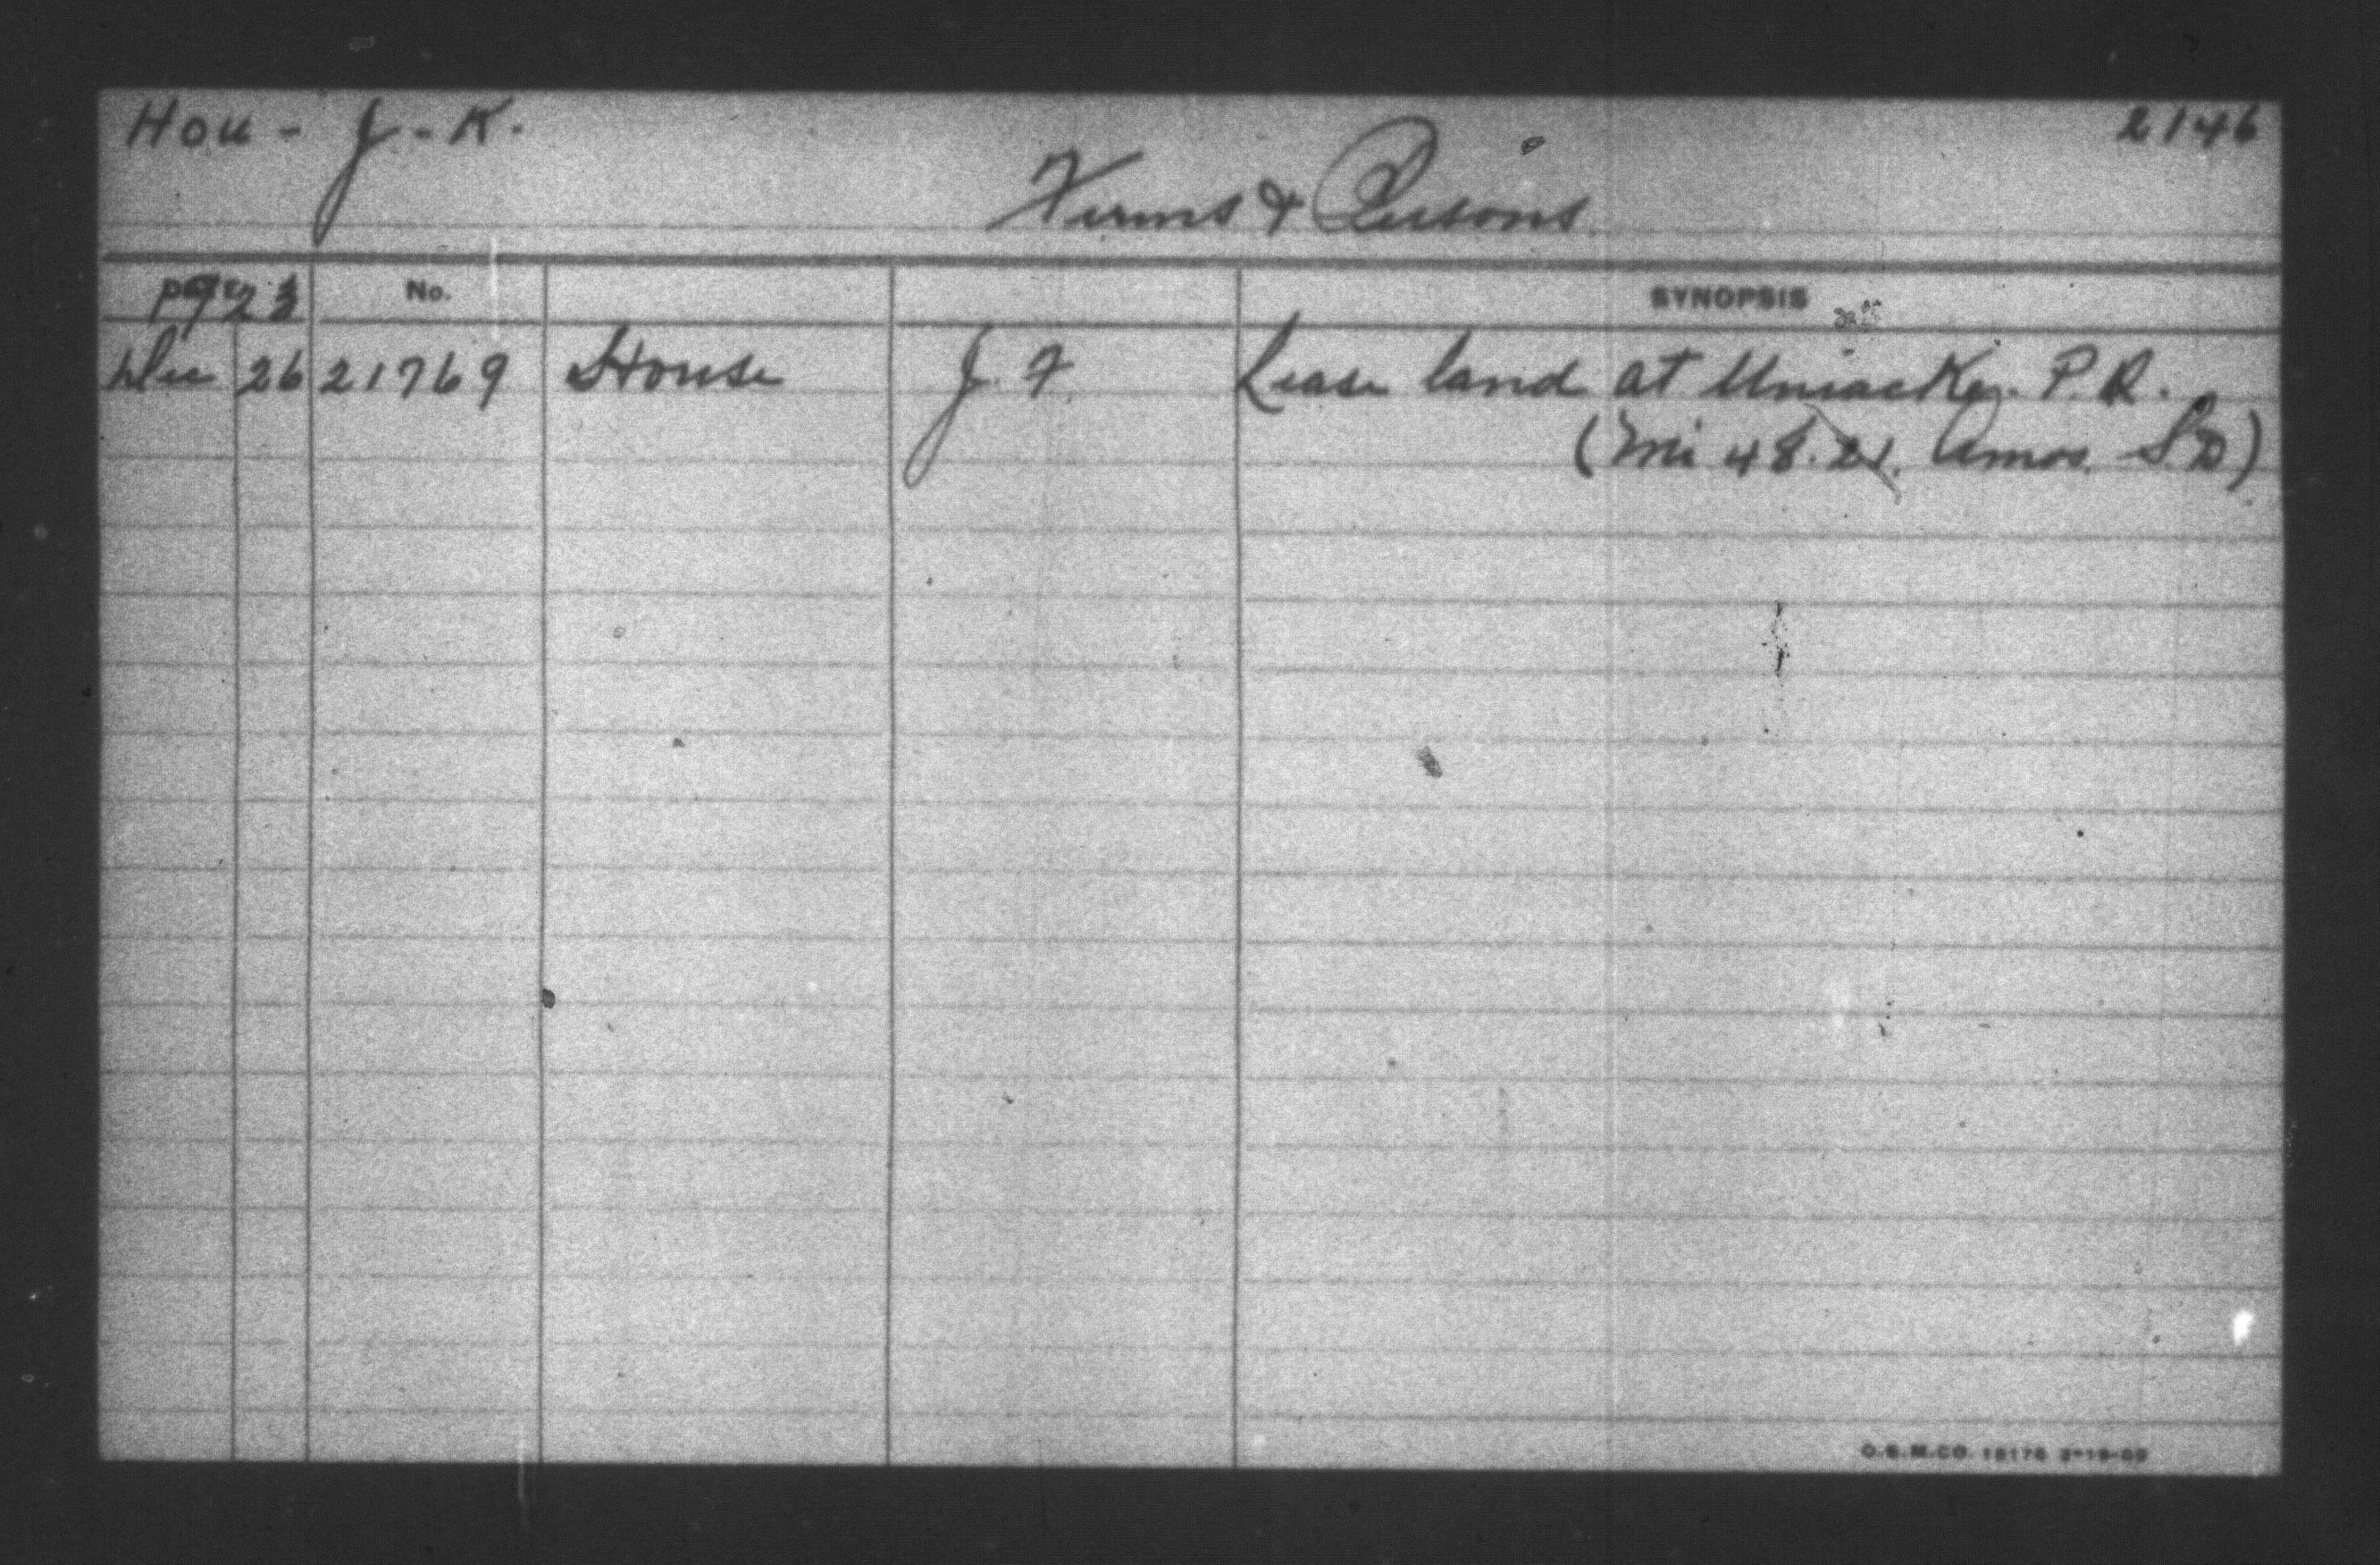 Hou - J - K.
2146
Firms & Persons
1923 No. SYNOPSIS
Dec 26 21769 House J. F. Lease land at Uniacke. P.Q.
(Mi 48.21. Amos. S.D)
O.S.M.CO. 18176 2-19-09